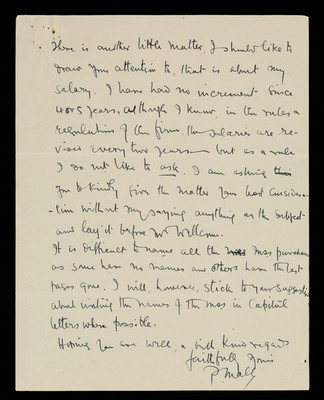 There is another little matter, I should like to
draw your attention to, that is about my
salary. I have had no increment since
4 or 5 years, although I know, in the rules &
regulations of the firm the salaries are re-
vised every two years — but as a rule
I do not like to ask. I am asking
you to kindly give the matter your best considera-
-tion without my saying anything on the subject
and lay it before Mr Wellcome.
It is difficult to name all the mss purchased
as some have no names and others have the last
pages gone. I will, however, stick to your suggestion
about writing the names of the mss in Capital
letters where possible.
Hoping you are well, & with kind regards
faithfully yours
P Mall